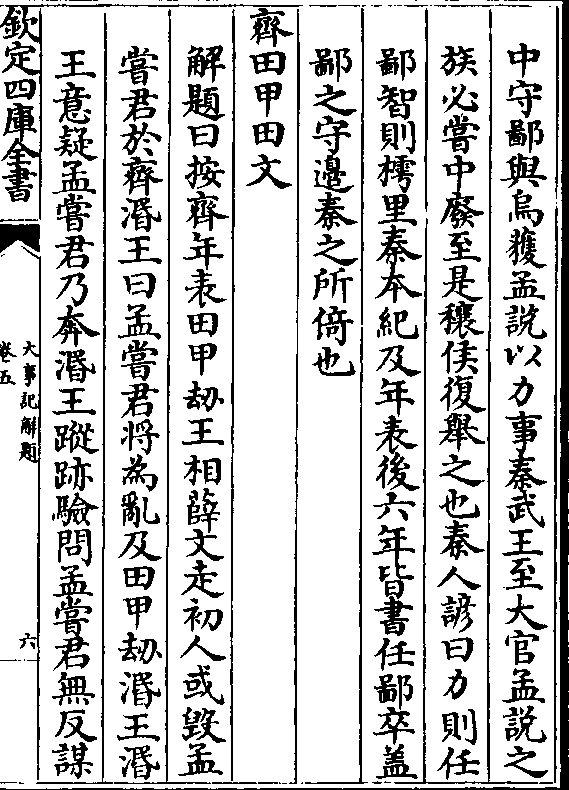 中守鄙與烏獲孟説以力事秦武王至大官孟説之
族必嘗中廢至是穰侯復舉之也秦人諺曰力則任
鄙智則樗里秦本紀及年表後六年皆書任鄙卒盖
鄙之守邉秦之所倚也
齊田甲田文
解題曰按齊年表田甲刼王相薛文走初人或毁孟
嘗君於齊湣王曰孟嘗君将為亂及田甲刼湣王湣
王意疑孟嘗君乃奔湣王蹤跡驗問孟嘗君無反謀
欽定四庫全書
大事記解題
卷五
六